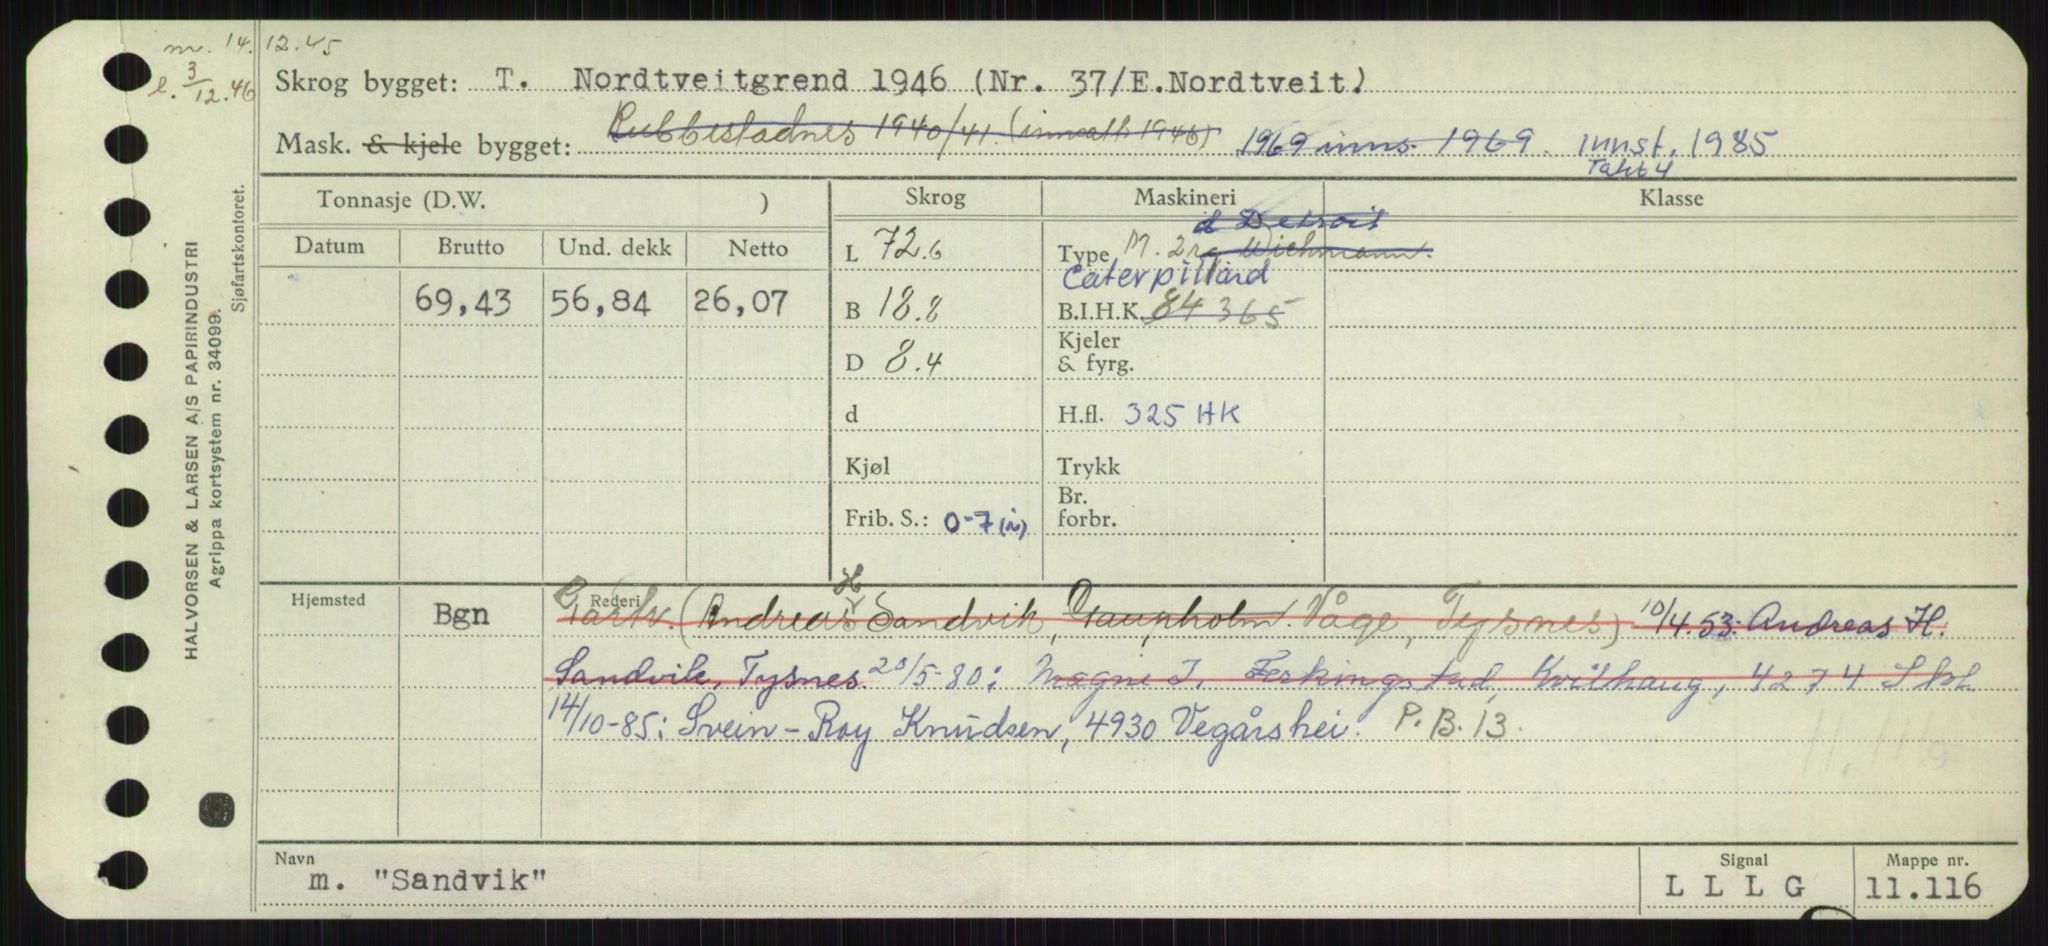 m. 14.12.45
l. 3/12.46
Skrog bygget: T. Nordtveitgrend 1946 (Nr. 37/E.Nordtveit)
Mask. & kjele bygget: Rubbestadnes 1940/41. (innsatt 1946) 1969 inns. 1969. innst. 1985
Takt 4
Tonnasje (D.W. ) Skrog Maskineri Klasse
Datum Brutto Und. dekk Netto
L 72.6
d Detroit
Type M. 2 Wichmann.
Caterpillard
69,43 56,84 26,07
B 18.8
B.I.H.K. 84 365
D 8.4
Kjeler & fyrg.
d
H.fl. 325 HK
Kjøl
Trykk
Frib. S.: 0-7 (i)
Br. forbr.
Hjemsted Bgn
Rederi
Partr. (Andreas H. Sandvik, Gaupholm. Våge, Tysnes) 10/4.53: Andreas H.
Sandvik, Tysnes. 20/5-80: Magne J. Ferkingstad, Kvilhaug, 4274 Stol
14/10-85: Svein-Roy Knudsen, 4930 Vegårshei. P.B. 13.
11.116
Navn m. "Sandvik"
Signal L L L G
Mappe nr. 11.116
HALVORSEN & LARSEN A/S PAPIRINDUSTRI
Agrippa kortsystem nr. 34099.
Sjøfartskontoret.